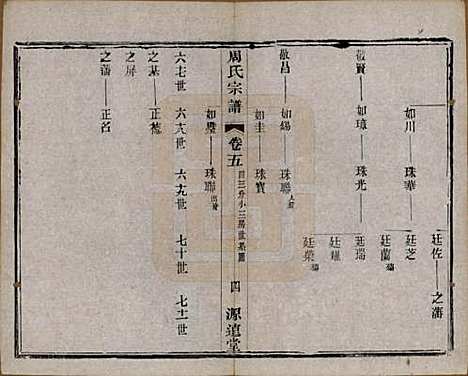 廷佐——之藩
如川——珠華——廷芝
廷蘭
敬賢——如璋——珠光——廷瑞
廷璀
廷榮
敬昌——如錫——珠聯
如圭——珠寶
周氏宗譜 卷五 四 源遠堂
如璧——珠聯
六七世 六六世 六九世 七十世 七十一世
之基——正德
之屏
之藩——正名